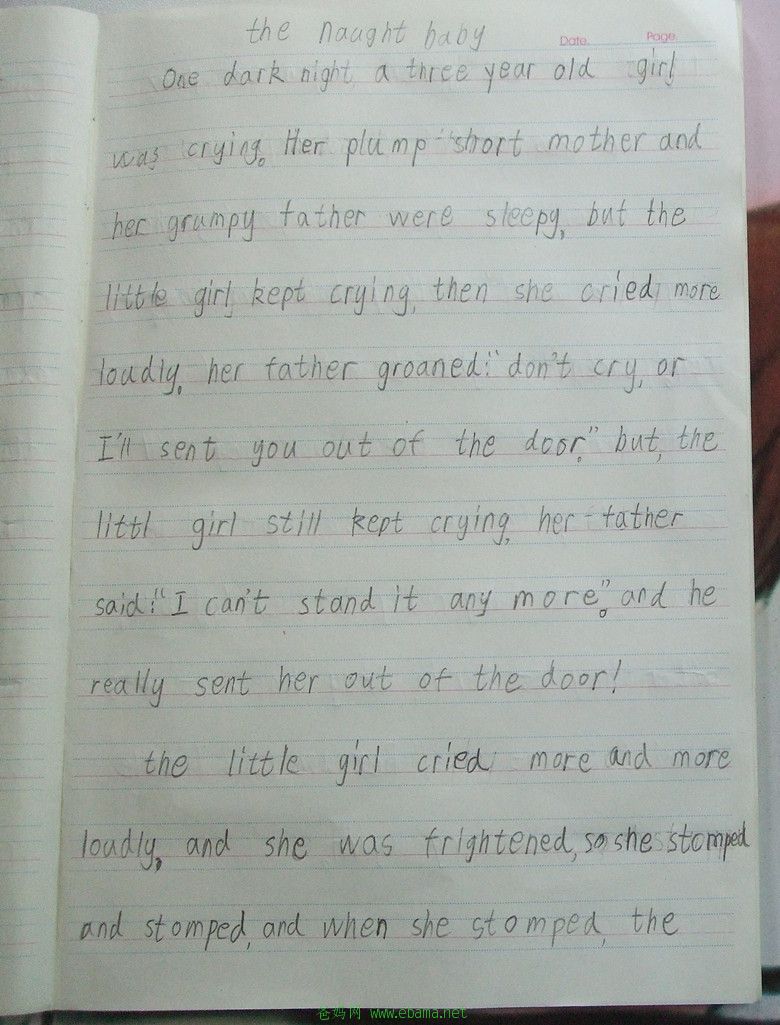 the naught baby
Date. Page.
One dark night, a three year old girl
was crying. Her plump short mother and
her grumpy father were sleepy, but the
little girl kept crying, then she cried more
loudly. her father groaned:"don't cry, or
I'll sent you out of the door." but, the
littl girl still kept crying, her father
said:"I can't stand it any more". and he
really sent her out of the door!
the little girl cried more and more
loudly, and she was frightened, so she stomped
and stomped, and when she stomped, the
爸妈网 www.ebama.net